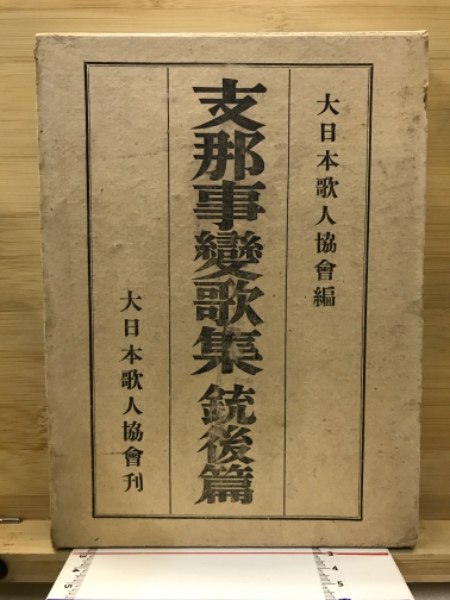 大日本歌人協會編
支那事變歌集 銃後篇
大日本歌人協會刊
3 4 5